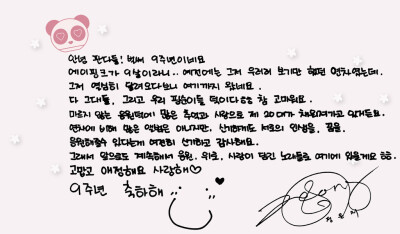 안녕 판다들! 벌써 9주년이네요
에이핑크가 9살이라니.. 예전에는 그저 우러러 보기만 했던 연차였는데.
그저 열심히 달려오다보니 여기까지 왔네요.
다 그대들, 그리고 우리 핑순이들 덕이다ㅎㅎ 참 고마워요.
마르지 않는 응원덕에 많은 추억과 사랑으로 제 20대가 채워져가고 있거든요.
연차에 비해 많은 앨범은 아니지만, 신기하게도 서로의 인생을, 꿈을
응원해줄수 있다는게 여전히 신기하고 감사해요.
그래서 앞으로도 계속해서 응원, 위로, 사랑이 담긴 노래들로 여기에 있을게요 ㅎㅎ.
고맙고 애정해요 사랑해♡
9주년 축하해
정은지